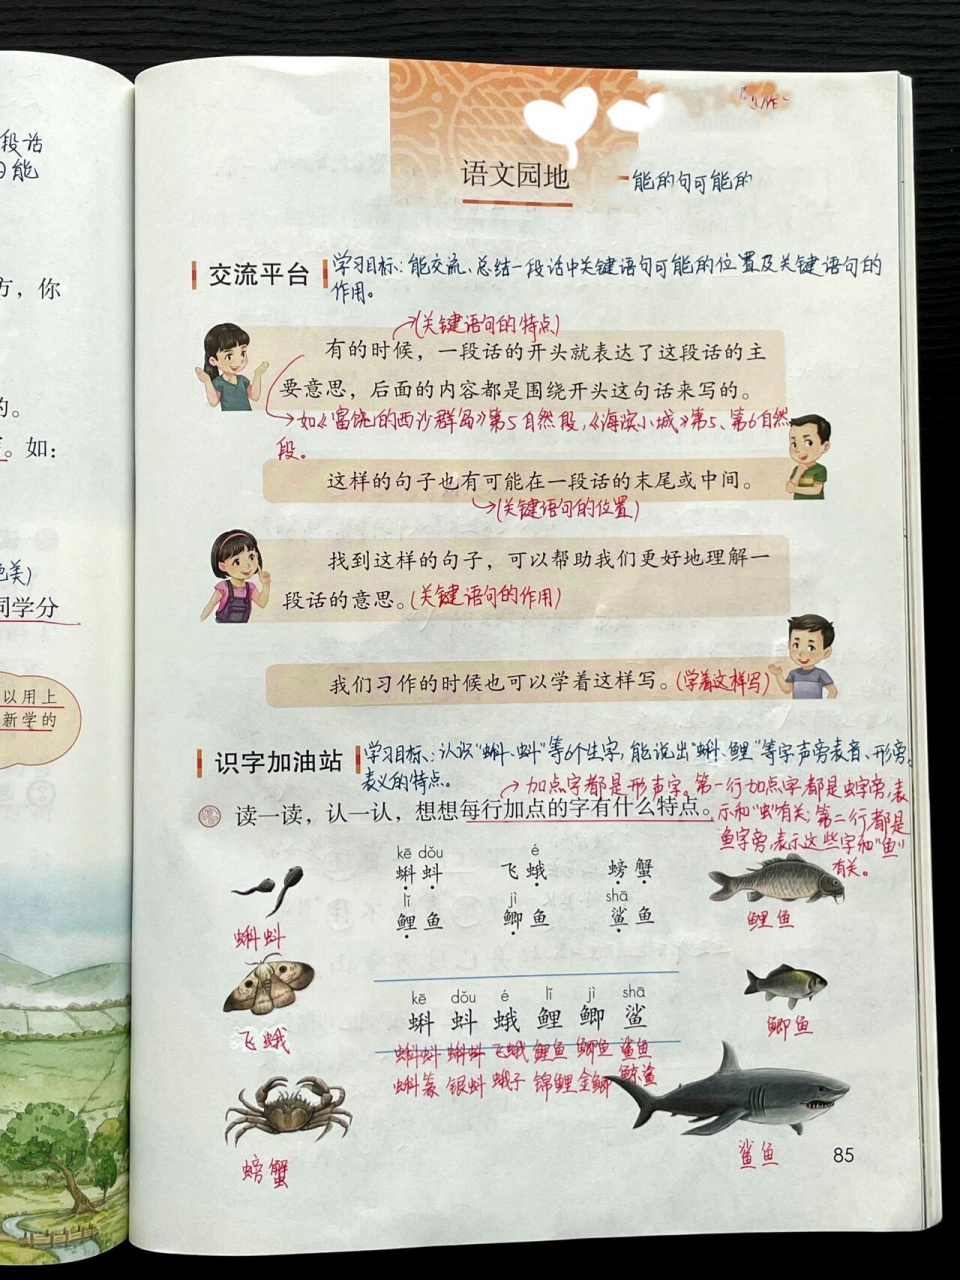 段话
能
方，你
的。
。如：
绝美）
同学分
以用上
新学的
语文园地
能的句可能的
交流平台
学习目标：能交流、总结一段话中关键语句可能的位置及关键语句的
作用。
（关键语句的特点）
有的时候，一段话的开头就表达了这段话的主
要意思，后面的内容都是围绕开头这句话来写的。
如《富饶的西沙群岛》第5自然段，《海滨小城》第5、第6自然
段。
这样的句子也有可能在一段话的末尾或中间。
（关键语句的位置）
找到这样的句子，可以帮助我们更好地理解一
段话的意思。（关键语句的作用）
我们习作的时候也可以学着这样写。（学着这样写）
识字加油站
学习目标：认识“蝌、蚪”等6个生字，能说出“蝌、鲤”等字声旁表音、形旁
表义的特点。
加点字都是形声字。第一行加点字都是虫字旁，表
示和“虫”有关；第二行都是
鱼字旁，表示这些字和“鱼”
有关。
读一读，认一认，想想每行加点的字有什么特点。
kē dǒu é
蝌蚪 飞蛾 螃蟹
lǐ jì shā
鲤鱼 鲫鱼 鲨鱼
蝌蚪
鲤鱼
飞蛾
鲫鱼
kē dǒu é lǐ jì shā
蝌 蚪 蛾 鲤 鲫 鲨
蝌蚪 蝌蚪 飞蛾 鲤鱼 鲫鱼 鲨鱼
蝌篆 银蚪 蛾子 锦鲤 金鲫 鲸鲨
螃蟹
鲨鱼
85